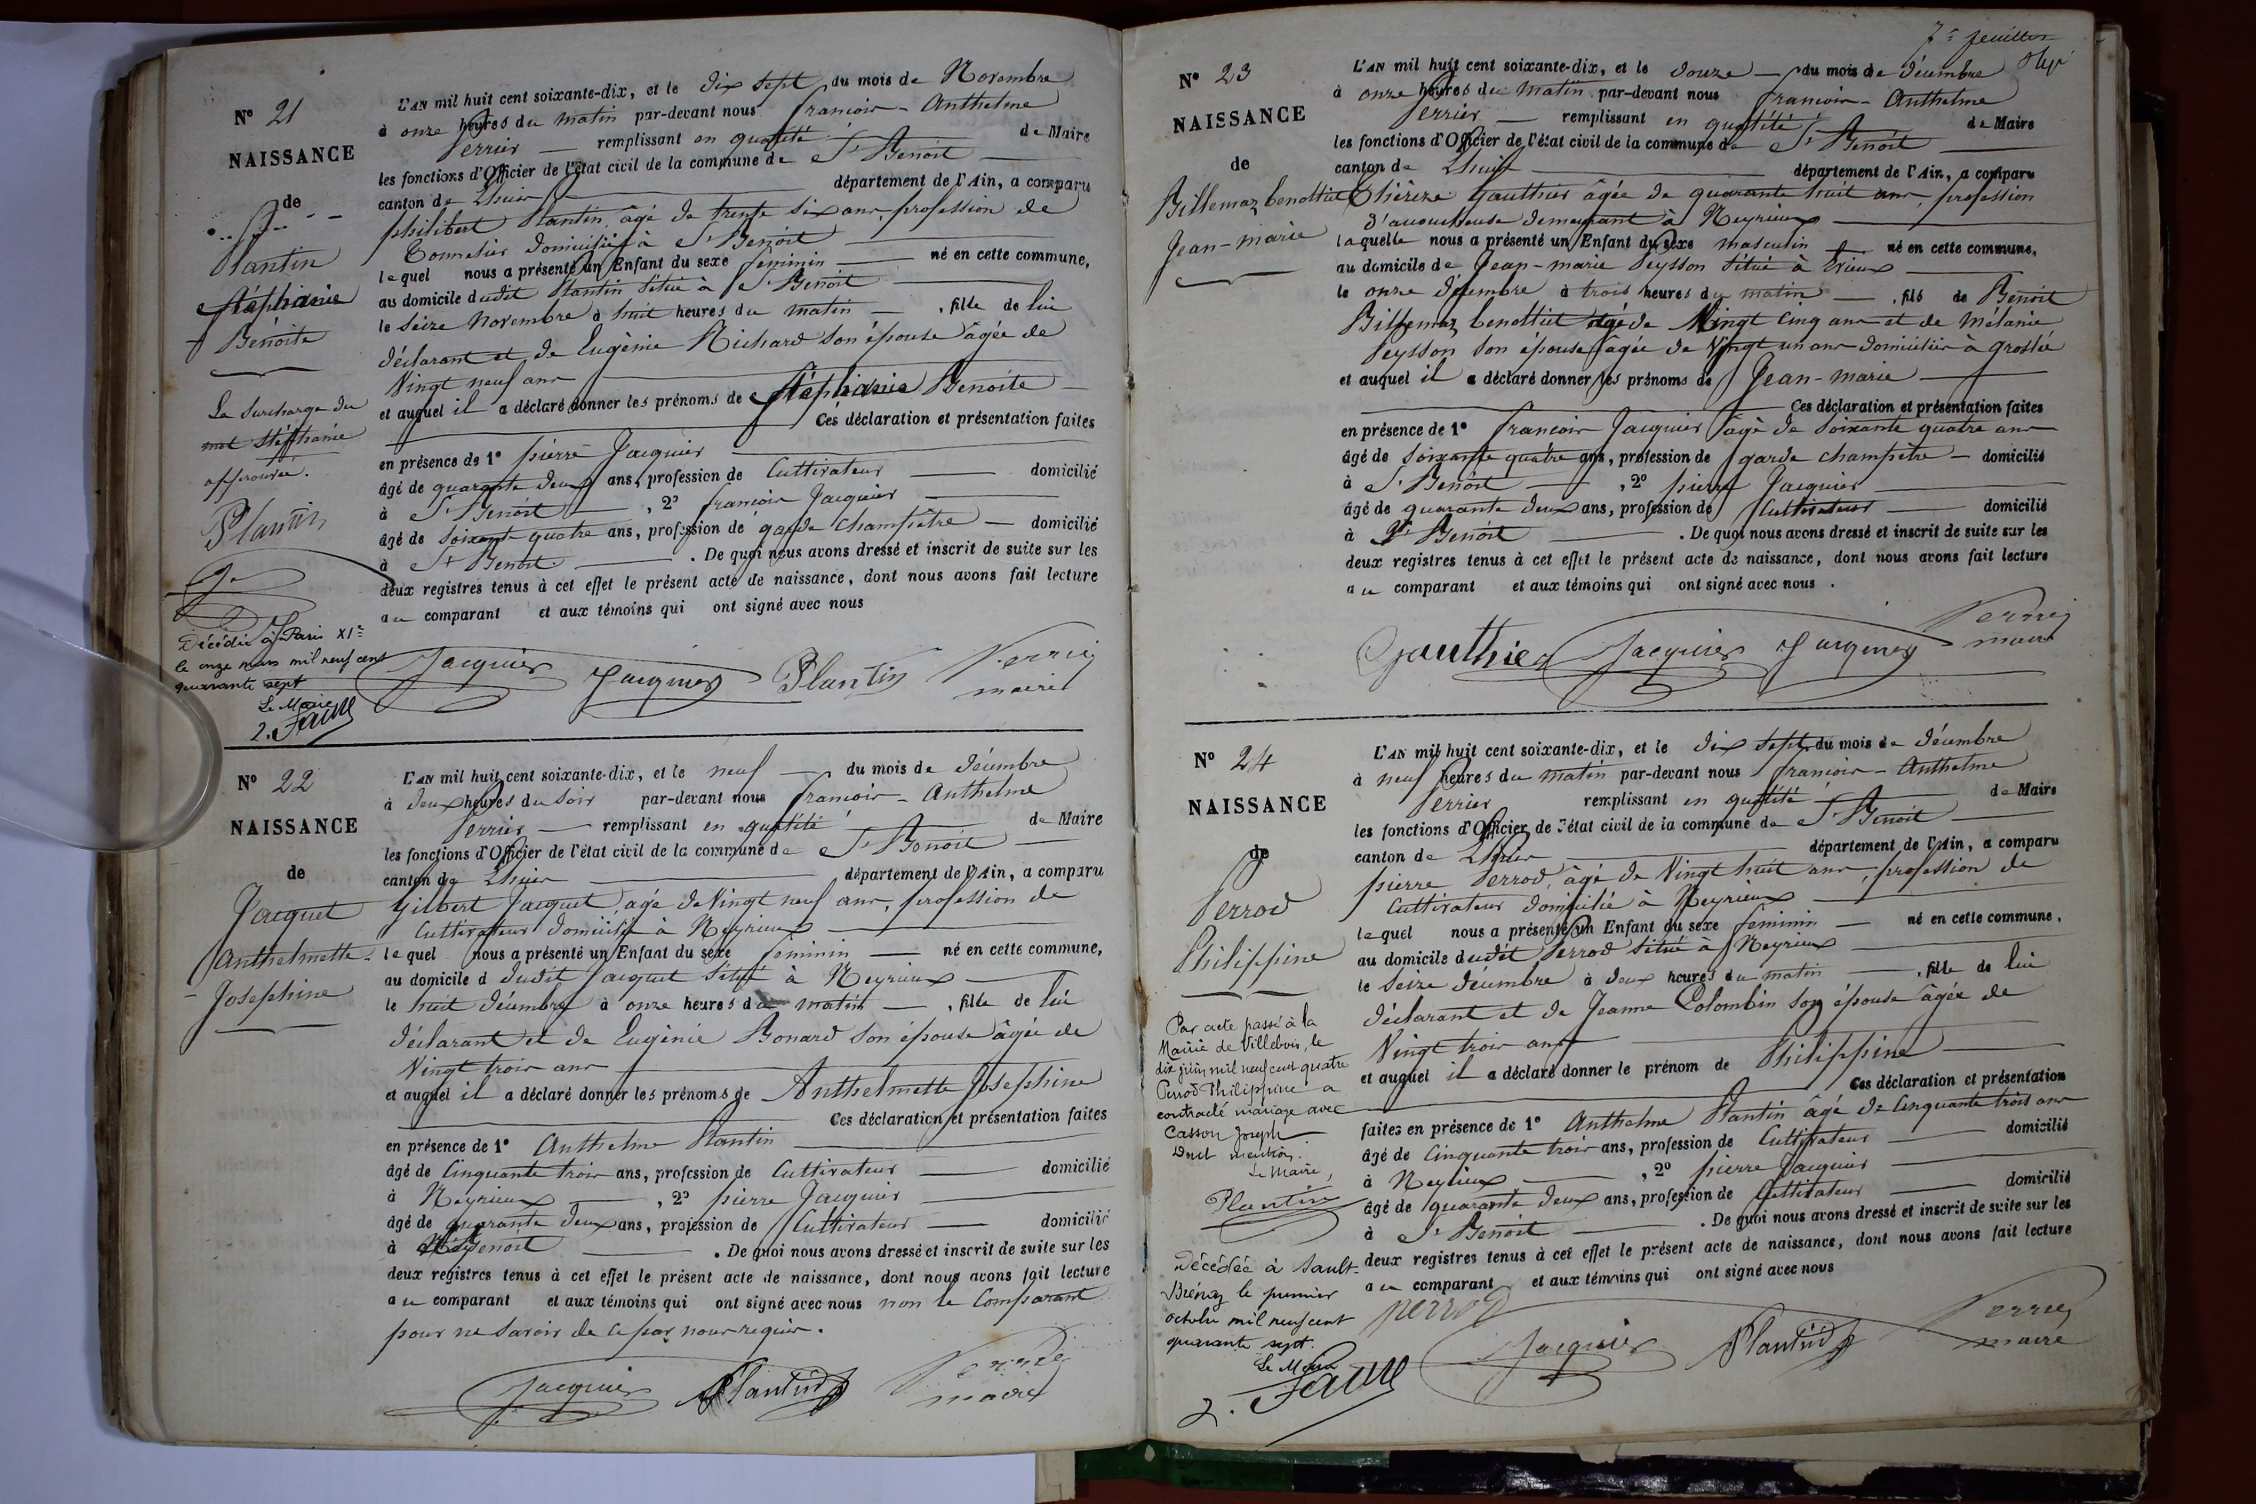 N° 21
NAISSANCE
de
Plantin
Stéphanie
Bénoite
La Surcharge du
mot Stéphanie
approuvée.
Plantin
Décédée à Paris XIe
le onze mars mil neuf cent
quarante sept
Le Maire
L'AN mil huit cent soixante-dix, et le dix sept du mois de Novembre
à onze heures du matin par-devant nous françois - Anthelme
Perrier — remplissant en qualité de Maire
les fonctions d'Officier de l'état civil de la commune de St Benoit
canton de Lhuis département de l'Ain, a comparu
philibert Plantin, âgé de trente six ans, profession de
Tonnelier domicilié à St Benoit
lequel nous a présenté un Enfant du sexe feminin né en cette commune,
au domicile dudit Plantin situé à St Benoit
le Seize Novembre à huit heures du matin , fille de lui
déclarant et de Eugènie Richard son épouse âgée de
Vingt neuf ans
et auquel il a déclaré donner les prénoms de Stéphanie Benoite
Ces déclaration et présentation faites
en présence de 1° pierre Jacquier
âgé de quarante deux ans, profession de Cultivateur domicilié
à St Benoit , 2° françois Jacquier
âgé de soixante quatre ans, profession de garde champêtre — domicilié
à St Benoit . De quoi nous avons dressé et inscrit de suite sur les
deux registres tenus à cet effet le présent acte de naissance, dont nous avons fait lecture
au comparant et aux témoins qui ont signé avec nous
Jacquier Jacquier Plantin Perrier
maire
N° 22
NAISSANCE
de
Jacquet
Anthelmette
Josephine
L'AN mil huit cent soixante-dix, et le neuf du mois de décembre
à deux heures du soir par-devant nous françois - Anthelme
Perrier — remplissant en qualité de Maire
les fonctions d'Officier de l'état civil de la commune de St Benoit
canton de Lhuis département de l'Ain, a comparu
Gilbert Jacquet, âgé de Vingt neuf ans, profession de
Cultivateur domicilié à Neyrieux
lequel nous a présenté un Enfant du sexe feminin né en cette commune,
au domicile d dudit Jacquet situé à Neyrieux
le huit décembre à onze heures du matin , fille de lui
déclarant et de Eugènie Bonard son épouse âgée de
Vingt trois ans
et auquel il a déclaré donner les prénoms de Anthelmette Josephine
Ces déclaration et présentation faites
en présence de 1° Anthelme Plantin
âgé de Cinquante trois ans, profession de Cultivateur domicilié
à Neyrieux , 2° pierre Jacquier
âgé de quarante deux ans, profession de Cultivateur domicilié
à St Benoit . De quoi nous avons dressé et inscrit de suite sur les
deux registres tenus à cet effet le présent acte de naissance, dont nous avons fait lecture
au comparant et aux témoins qui ont signé avec nous non le Comparant
pour ne savoir de ce par nous requis.
Jacquier Plantin Perrier
maire
7e feuillet
N° 23
NAISSANCE
de
Billemaz benottut
Jean-marie
L'AN mil huit cent soixante-dix, et le douze du mois de décembre
à onze heures du matin par-devant nous françois - Anthelme
Perrier — remplissant en qualité de Maire
les fonctions d'Officier de l'état civil de la commune de St Benoit
canton de Lhuis département de l'Ain, a comparu
Thérèze Gauthier âgée de quarante huit ans, profession
d'accoucheuse demeurant à Neyrieux
laquelle nous a présenté un Enfant du sexe masculin né en cette commune,
au domicile de Jean-marie Peysson situé à Evieux
le onze décembre à trois heures du matin , fils de Benoit
Billemaz benottut âgé de Vingt cinq ans et de Mélanie
Peysson son épouse âgée de Vingt un ans domiciliés à Groslée
et auquel il a déclaré donner les prénoms de Jean-marie
Ces déclaration et présentation faites
en présence de 1° françois Jacquier âgé de soixante quatre ans
âgé de soixante quatre ans, profession de garde champêtre — domicilié
à St Benoit , 2° pierre Jacquier
âgé de quarante deux ans, profession de Cultivateur domicilié
à St Benoit . De quoi nous avons dressé et inscrit de suite sur les
deux registres tenus à cet effet le présent acte de naissance, dont nous avons fait lecture
au comparant et aux témoins qui ont signé avec nous .
Gauthier Jacquier Jacquier Perrier
maire
N° 24
NAISSANCE
de
Perrod
Philippine
Par acte passé à la
Mairie de Villebois, le
dix juin mil neuf cent quatre
Perrod Philippine a
contracté mariage avec
Casson Joseph
Dont mention.
Le Maire,
Plantin
Décédée à Sault-
Brénaz le premier
octobre mil neuf cent
quarante sept.
Le Maire
L'AN mil huit cent soixante-dix, et le dix sept du mois de décembre
à neuf heures du matin par-devant nous françois - Anthelme
Perrier remplissant en qualité de Maire
les fonctions d'Officier de l'état civil de la commune de St Benoit
canton de Lhuis département de l'Ain, a comparu
pierre Perrod, âgé de Vingt huit ans, profession de
Cultivateur domicilié à Neyrieux
lequel nous a présenté un Enfant du sexe feminin né en cette commune,
au domicile dudit Perrod situé à Neyrieux
le Seize décembre à deux heures du matin , fille de lui
déclarant et de Jeanne Colombin son épouse âgée de
Vingt trois ans
et auquel il a déclaré donner le prénom de Philippine
Ces déclaration et présentation
faites en présence de 1° Anthelme Plantin âgé de Cinquante trois ans
âgé de Cinquante trois ans, profession de Cultivateur domicilié
à Neyrieux , 2° pierre Jacquier
âgé de quarante deux ans, profession de Cultivateur domicilié
à St Benoit . De quoi nous avons dressé et inscrit de suite sur les
deux registres tenus à cet effet le présent acte de naissance, dont nous avons fait lecture
au comparant et aux témoins qui ont signé avec nous
perrod Jacquier Plantin Perrier
maire